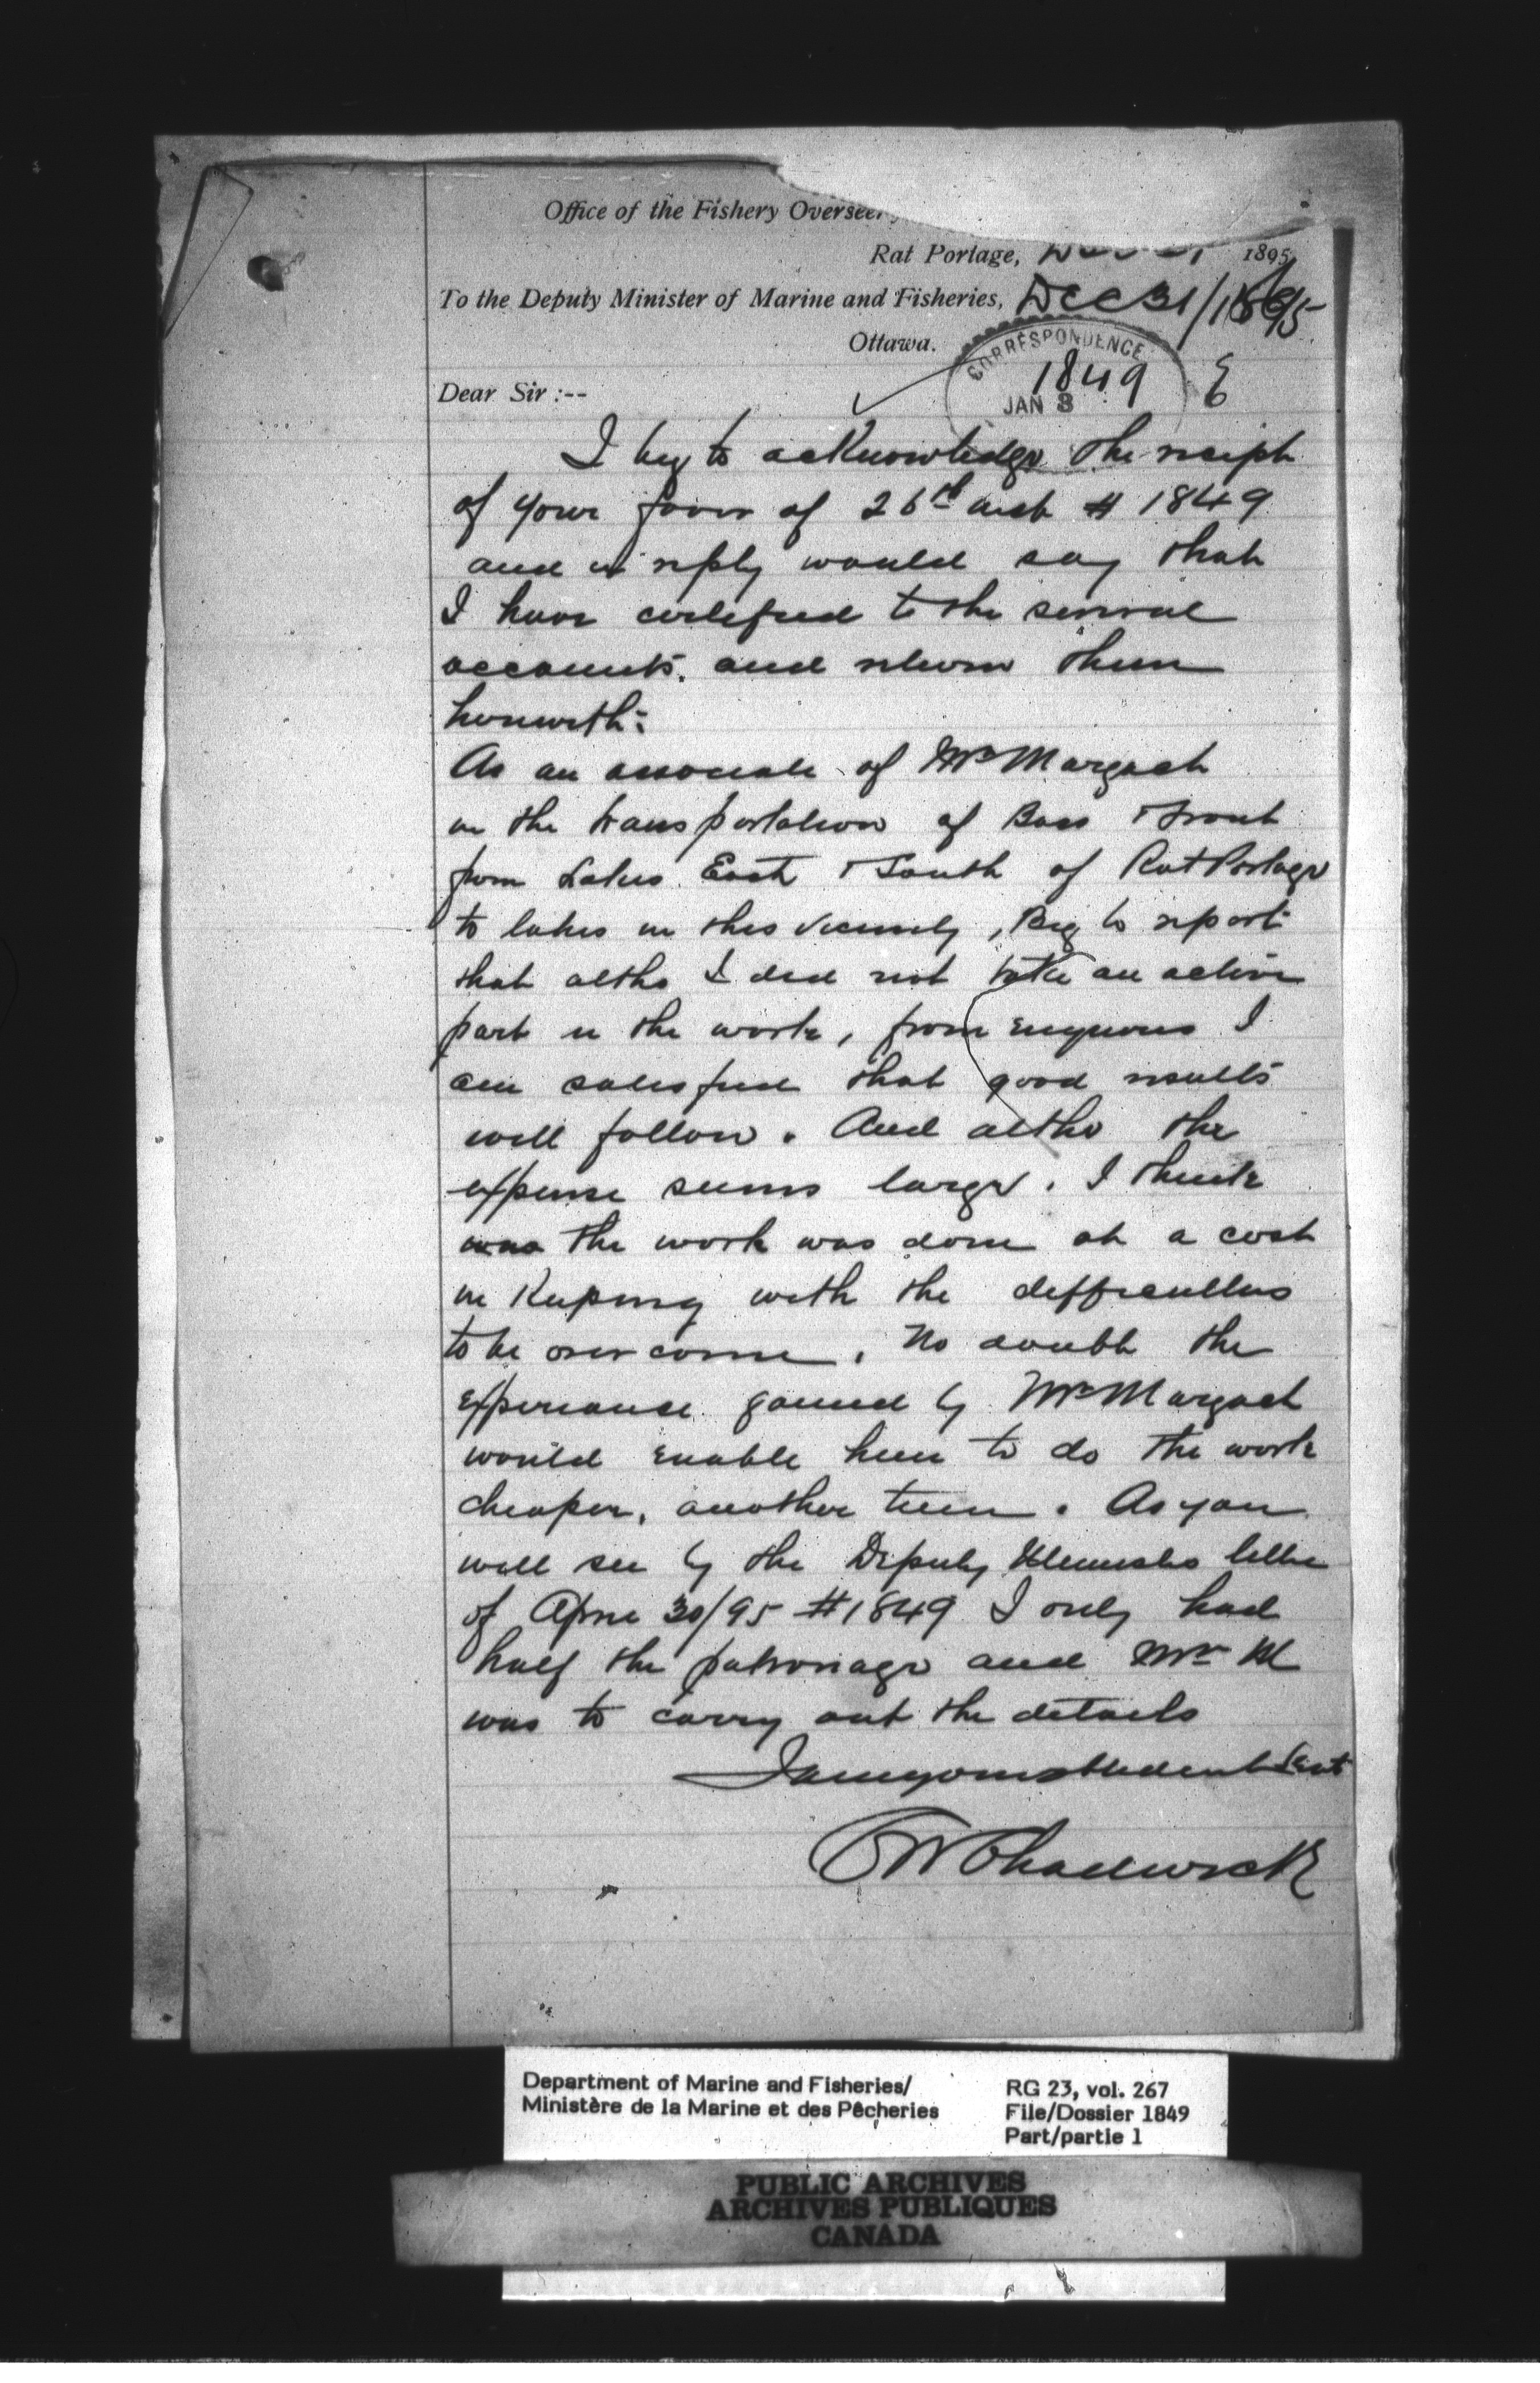 Office of the Fishery Overseer
Rat Portage, 1895
To the Deputy Minister of Marine and Fisheries, Dec 31/1895
Ottawa.
CORRESPONDENCE
1849
JAN 3
Dear Sir :--
I beg to acknowledge the reciept
of your favor of 26th inst # 1849
and in reply would say that
I have certefied to the several
accounts. and return them
herewith:
As an associate of Mr Margach
in the transportation of Bass & Trout
from Lakes East & South of Rat Portage
to lakes in this vicinity, Beg to report
that altho I did not take an active
part in the work, from enquiries I
am satisfied that good results
will follow. And altho the
expense seems large. I think
was the work was done at a cost
in Keeping with the difficulties
to be over come. No doubt the
experiance gained by Mr Margach
would enable him to do the work
cheaper, another time. As you
will see by the Deputy Ministers letter
of April 30/95 #1849 I only had
half the patronage and Mr M
was to carry out the details
I am your obedient Servt
CW Chadwick
Department of Marine and Fisheries/
Ministère de la Marine et des Pêcheries
RG 23, vol. 267
File/Dossier 1849
Part/partie 1
PUBLIC ARCHIVES
ARCHIVES PUBLIQUES
CANADA